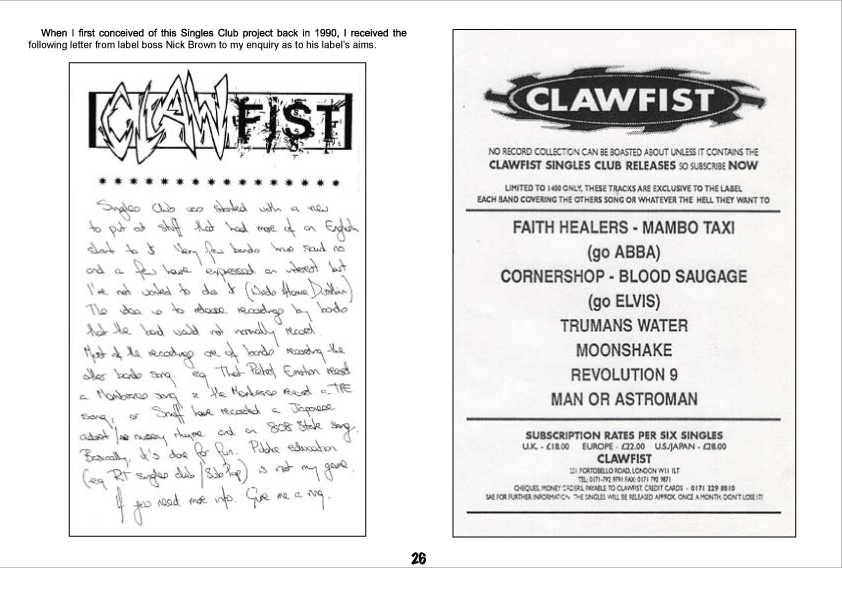 When I first conceived of this Singles Club project back in 1990, I received the
following letter from label boss Nick Brown to my enquiry as to his label's aims.
CLAWFIST
* * * * * * * * * * * * * * * *
Singles Club was started with a view
to put out stuff that had more of an English
slant to it. Very few bands have said no
and a few have expressed an interest but
I've not wanted to do it (Neds Atomic Dustbin).
The idea is to release recordings by bands
that the band would not normally record.
Most of the recordings are of bands recording the
other bands song. eg That Petrol Emotion record
a Membranes song & the Membranes record a TPE
song, or Snuff have recorded a Japanese
advert/ nursery rhyme and an 808 State song.
Basically, it's done for fun. Public education
(eg RT singles club/Sub Pop) is not my game.
If you need more info. Give me a ring.
CLAWFIST
NO RECORD COLLECTION CAN BE BOASTED ABOUT UNLESS IT CONTAINS THE
CLAWFIST SINGLES CLUB RELEASES SO SUBSCRIBE NOW
LIMITED TO 1400 ONLY, THESE TRACKS ARE EXCLUSIVE TO THE LABEL
EACH BAND COVERING THE OTHERS SONG OR WHATEVER THE HELL THEY WANT TO
FAITH HEALERS - MAMBO TAXI
(go ABBA)
CORNERSHOP - BLOOD SAUGAGE
(go ELVIS)
TRUMANS WATER
MOONSHAKE
REVOLUTION 9
MAN OR ASTROMAN
SUBSCRIPTION RATES PER SIX SINGLES
U.K. - £18.00 EUROPE - £22.00 U.S/JAPAN - £28.00
CLAWFIST
PORTOBELLO ROAD, LONDON W11 1LT
TEL: 0171-792 9791 FAX: 0171 792 9871
CHEQUES, MONEY ORDERS, PAYABLE TO CLAWFIST. CREDIT CARDS - 0171 229 8010
SAE FOR FURTHER INFORMATION THE SINGLES WILL BE RELEASED APPROX. ONCE A MONTH, DON'T LOSE IT!
26